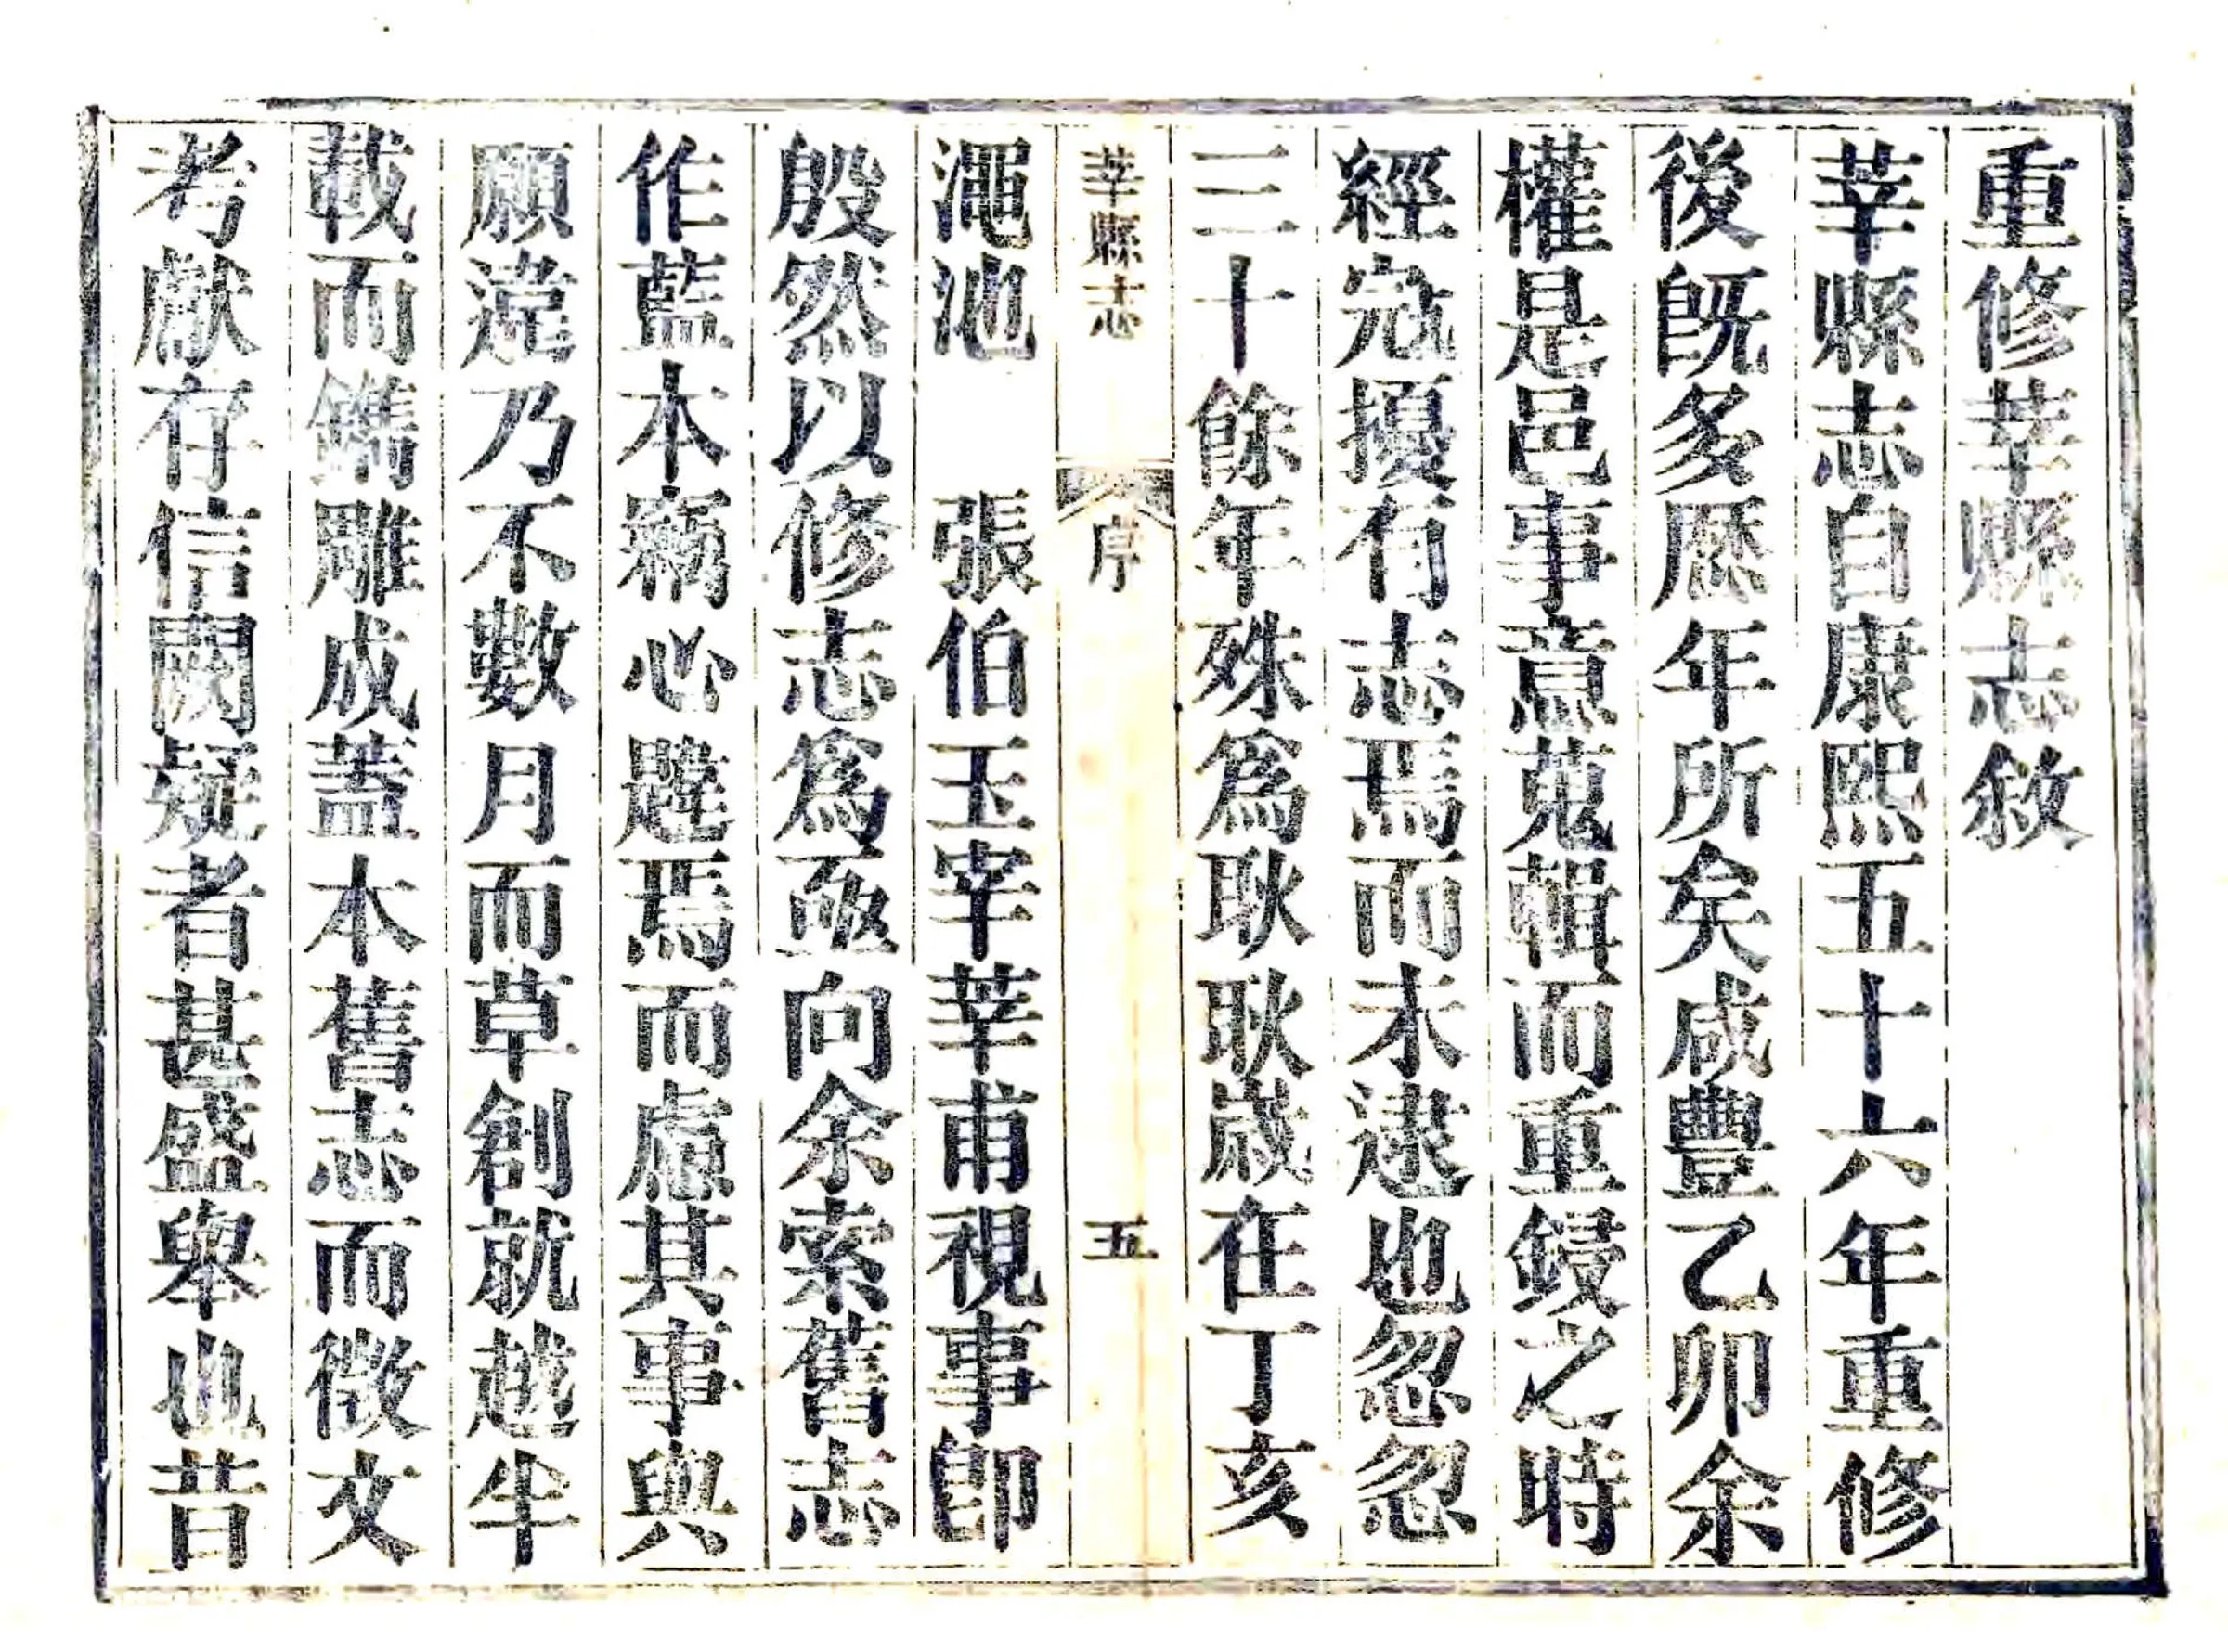 重修莘縣志敘
莘縣志自康熙五十六年重修
後旣多歷年所矣咸豐乙卯余
權是邑事意蒐輯而重鋟之時
經宼擾有志焉而未逮也忽忽
三十餘年殊爲耿耿歲在丁亥
莘縣志
序
五
澠池 張伯玉宰莘甫視事卽
殷然以修志爲亟向余索舊志
作藍本竊心韙焉而慮其事與
願違乃不數月而草創就越半
載而鐫雕成蓋本舊志而徵文
考獻存信闕疑者甚盛舉也昔